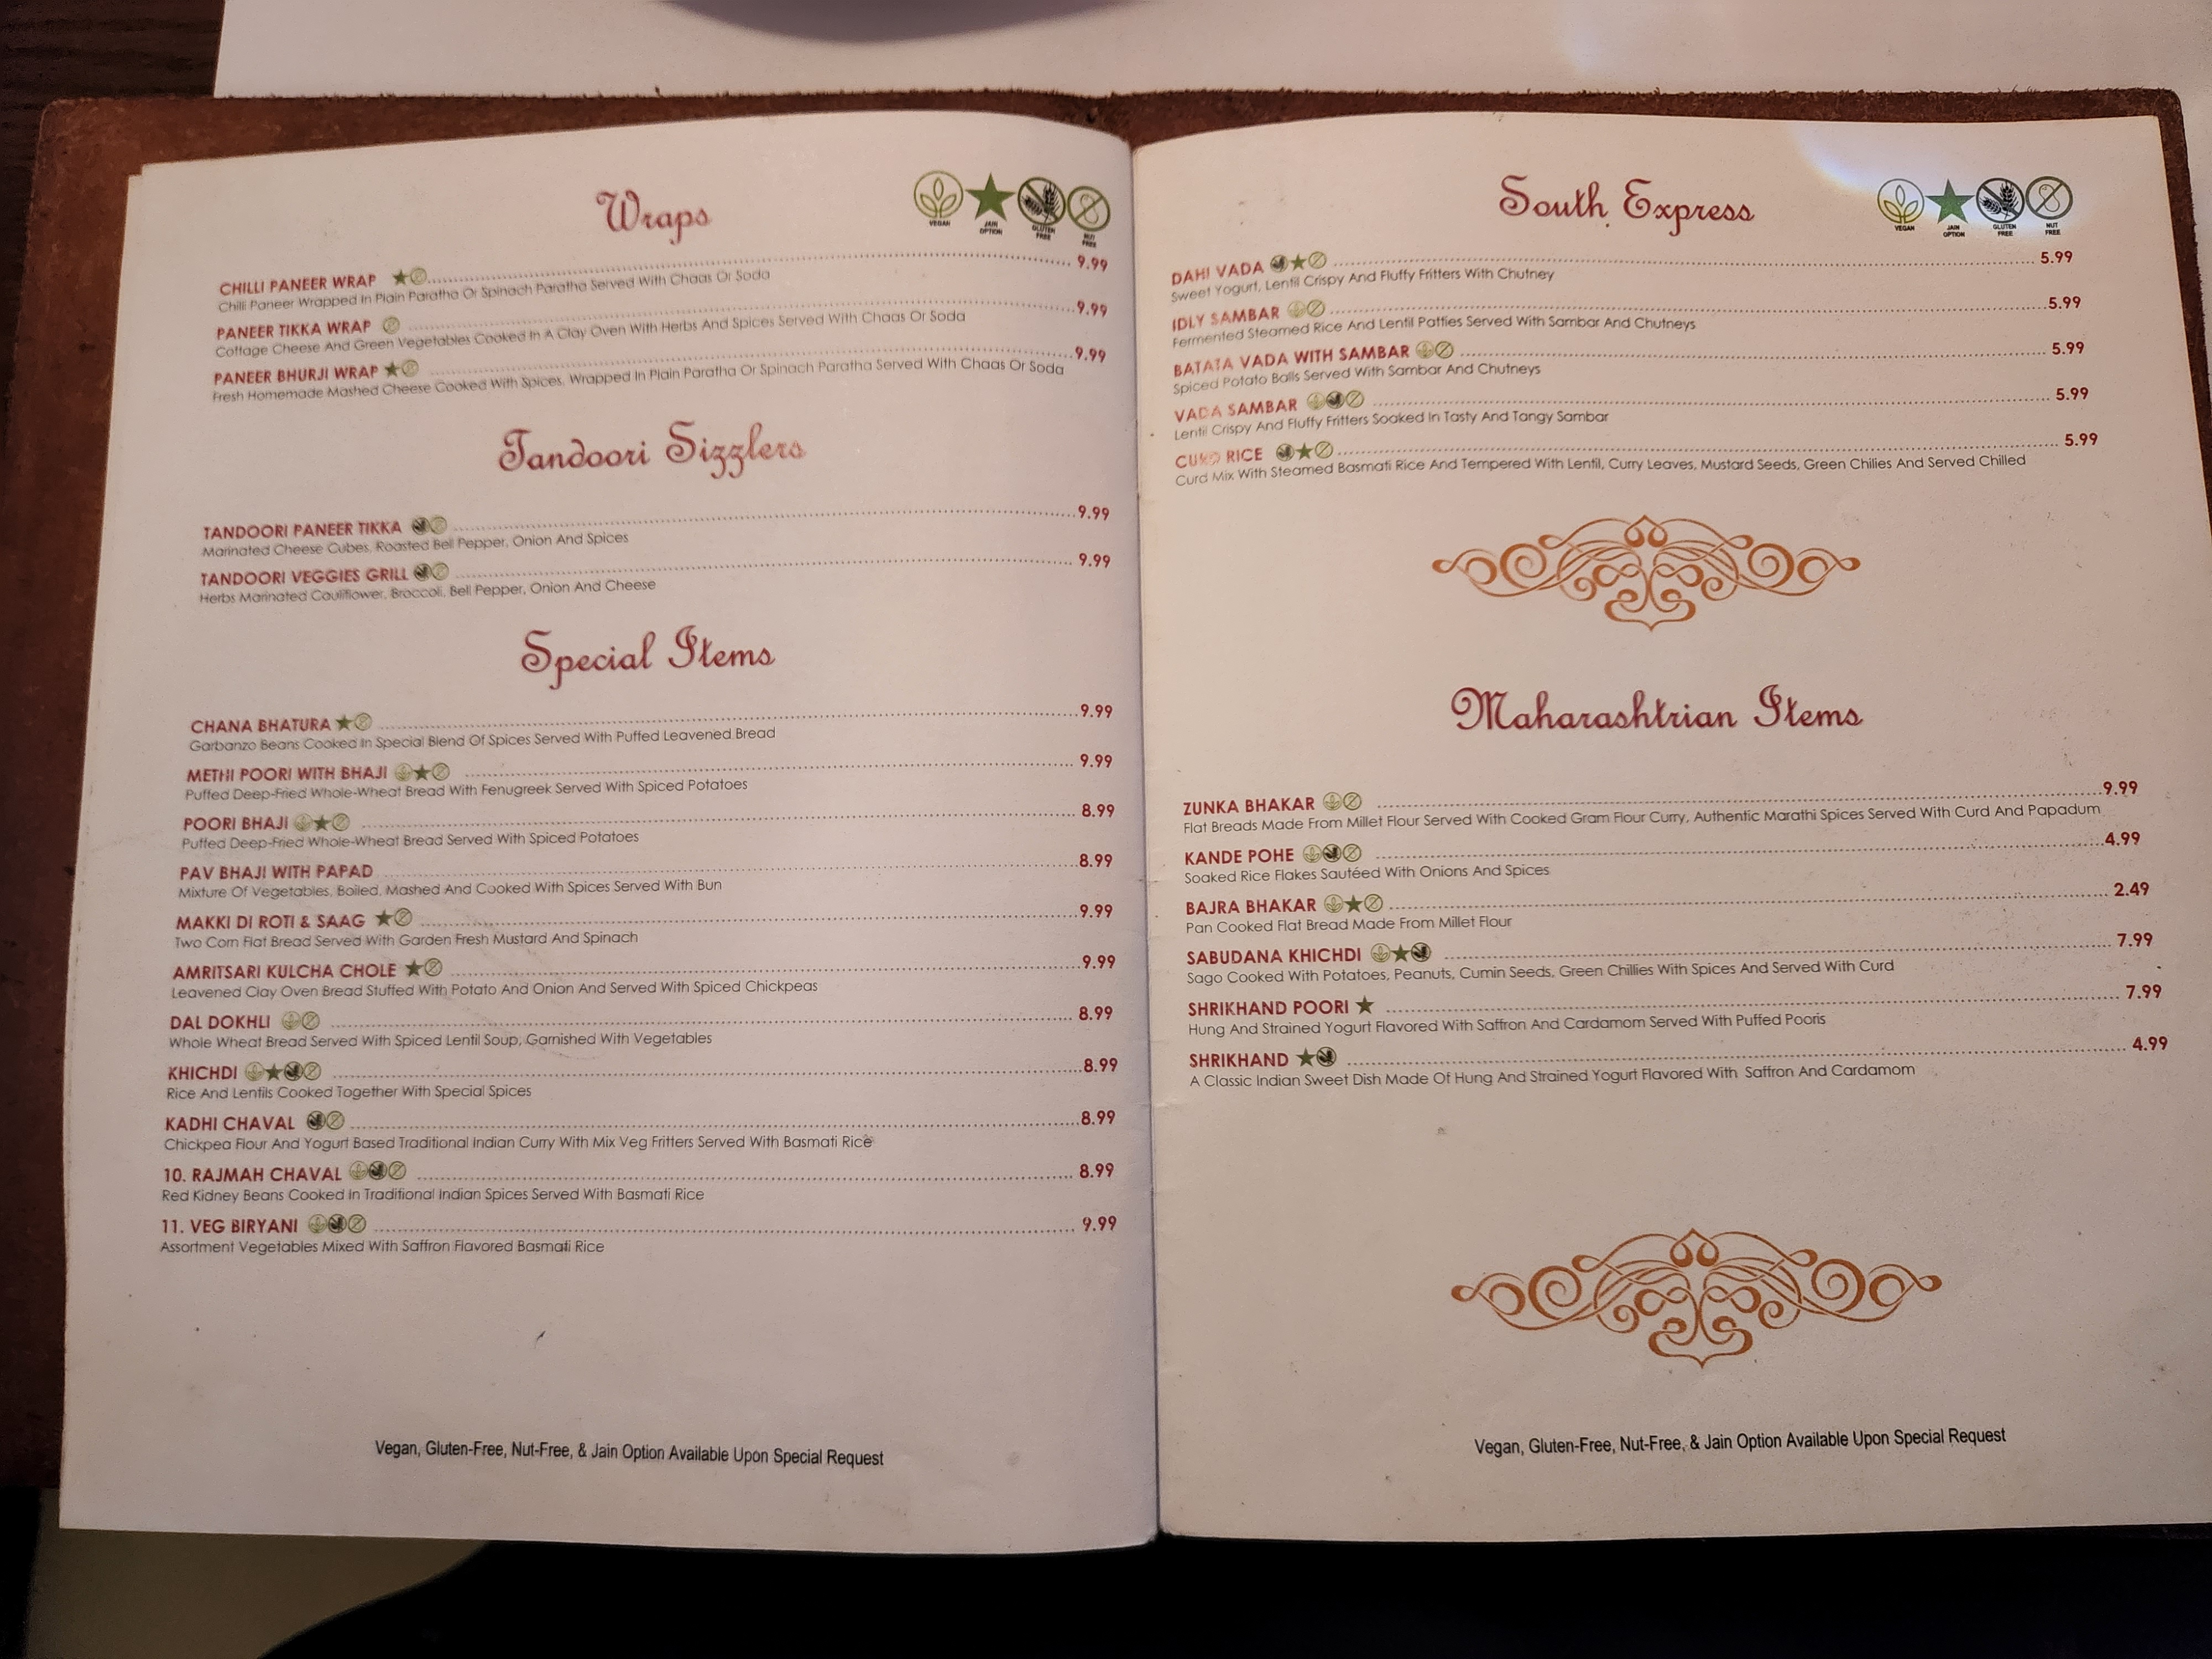 Wraps
VEGAN
JAIN OPTION
GLUTEN FREE
NUT FREE
CHILLI PANEER WRAP 9.99
Chilli Paneer Wrapped In Plain Paratha Or Spinach Paratha Served With Chaas Or Soda
PANEER TIKKA WRAP 9.99
Cottage Cheese And Green Vegetables Cooked In A Clay Oven With Herbs And Spices Served With Chaas Or Soda
PANEER BHURJI WRAP 9.99
Fresh Homemade Mashed Cheese Cooked With Spices, Wrapped In Plain Paratha Or Spinach Paratha Served With Chaas Or Soda
Tandoori Sizzlers
TANDOORI PANEER TIKKA 9.99
Marinated Cheese Cubes, Roasted Bell Pepper, Onion And Spices
TANDOORI VEGGIES GRILL 9.99
Herbs Marinated Cauliflower, Broccoli, Bell Pepper, Onion And Cheese
Special Items
CHANA BHATURA 9.99
Garbanzo Beans Cooked In Special Blend Of Spices Served With Puffed Leavened Bread
METHI POORI WITH BHAJI 9.99
Puffed Deep-Fried Whole-Wheat Bread With Fenugreek Served With Spiced Potatoes
POORI BHAJI 8.99
Puffed Deep-Fried Whole-Wheat Bread Served With Spiced Potatoes
PAV BHAJI WITH PAPAD 8.99
Mixture Of Vegetables, Boiled, Mashed And Cooked With Spices Served With Bun
MAKKI DI ROTI & SAAG 9.99
Two Corn Flat Bread Served With Garden Fresh Mustard And Spinach
AMRITSARI KULCHA CHOLE 9.99
Leavened Clay Oven Bread Stuffed With Potato And Onion And Served With Spiced Chickpeas
DAL DOKHLI 8.99
Whole Wheat Bread Served With Spiced Lentil Soup, Garnished With Vegetables
KHICHDI 8.99
Rice And Lentils Cooked Together With Special Spices
KADHI CHAVAL 8.99
Chickpea Flour And Yogurt Based Traditional Indian Curry With Mix Veg Fritters Served With Basmati Rice
10. RAJMAH CHAVAL 8.99
Red Kidney Beans Cooked In Traditional Indian Spices Served With Basmati Rice
11. VEG BIRYANI 9.99
Assortment Vegetables Mixed With Saffron Flavored Basmati Rice
Vegan, Gluten-Free, Nut-Free, & Jain Option Available Upon Special Request
South Express
VEGAN
JAIN OPTION
GLUTEN FREE
NUT FREE
DAHI VADA 5.99
Sweet Yogurt, Lentil Crispy And Fluffy Fritters With Chutney
IDLY SAMBAR 5.99
Fermented Steamed Rice And Lentil Patties Served With Sambar And Chutneys
BATATA VADA WITH SAMBAR 5.99
Spiced Potato Balls Served With Sambar And Chutneys
VADA SAMBAR 5.99
Lentil Crispy And Fluffy Fritters Soaked In Tasty And Tangy Sambar
CURD RICE 5.99
Curd Mix With Steamed Basmati Rice And Tempered With Lentil, Curry Leaves, Mustard Seeds, Green Chilies And Served Chilled
Maharashtrian Items
ZUNKA BHAKAR 9.99
Flat Breads Made From Millet Flour Served With Cooked Gram Flour Curry, Authentic Marathi Spices Served With Curd And Papadum
KANDE POHE 4.99
Soaked Rice Flakes Sautéed With Onions And Spices
BAJRA BHAKAR 2.49
Pan Cooked Flat Bread Made From Millet Flour
SABUDANA KHICHDI 7.99
Sago Cooked With Potatoes, Peanuts, Cumin Seeds, Green Chillies With Spices And Served With Curd
SHRIKHAND POORI 7.99
Hung And Strained Yogurt Flavored With Saffron And Cardamom Served With Puffed Pooris
SHRIKHAND 4.99
A Classic Indian Sweet Dish Made Of Hung And Strained Yogurt Flavored With Saffron And Cardamom
Vegan, Gluten-Free, Nut-Free, & Jain Option Available Upon Special Request